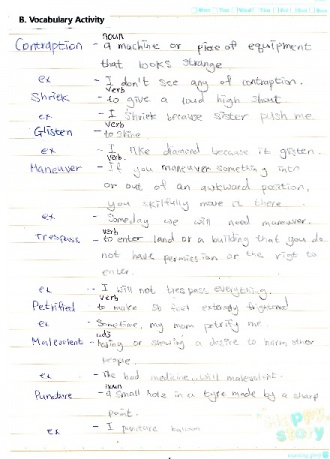 B. Vocabulary Activity
noun
Contraption - a machine or piece of equipment
that looks strange
ex - I don't see any of contraption.
verb
Shriek - to give a loud high shout
ex - I shriek because sister push me
verb
Glisten - to shine
ex - I like diamond because it glisten.
verb.
Maneuver - If you maneuver something into
or out of an awkward position,
you skilfully move it there
ex - Someday we will need maneuver.
verb
Trespass - to enter land or a building that you do
not have permission or the rigt to
enter.
ex - I will not trespass everything.
verb
Petrified - to make sb feel extremly frightened
ex - Sometime, my mom petrify me.
adj
Malevolent - having or showing a desire to harm other
people.
ex - The bad medicine will malevolent.
noun
Puncture - a small hole in a tyre made by a sharp
point.
ex - I puncture
story